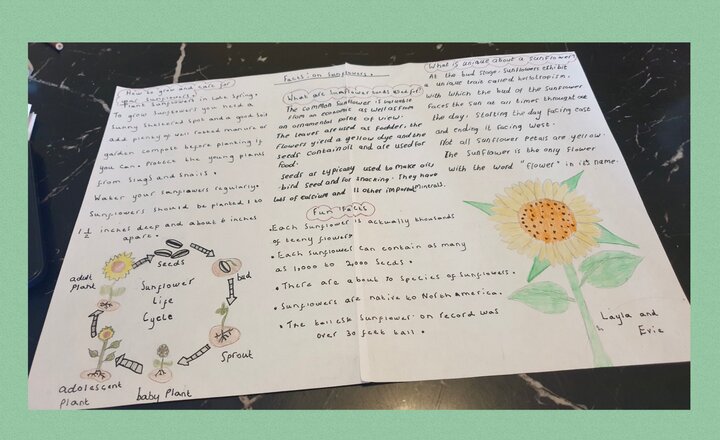 How to grow and care for
your sunflowers?
Plant Sunflowers in late Spring.
To grow Sunflowers you need a
sunny sheltered spot and a good soil
add plenty of well rotted manure or
garden compost before planting if
you can. Protect the young plants
from slugs and snails.
Water your sunflowers regularly.
Sunflowers should be planted 1 to
1 1/2 inches deep and about 6 inches
apart.
seeds
bud
Sprout
baby plant
adolescent
plant
adult
plant
Sunflower
life
Cycle
Facts: on sunflowers.
What are sunflower seeds used for?
The common sunflower is valuable
from an economic as well as from
an ornamental point of view.
The leaves are used as fodder, the
flowers yield a yellow dye and the
seeds contain oil and are used for
food.
seeds ar typically used to make oils
bird seed and for snacking. They have
lots of calcium and 11 other important minerals.
Fun Facts
• Each Sunflower is actually thousands
of teeny flowers
• Each sunflower can contain as many
as 1,000 to 2,000 seeds.
• There are about 70 species of sunflowers.
• Sunflowers are native to North America.
• The tallest sunflower on record was
over 30 feet tall.
What is unique about a sunflower
At the bud stage. Sunflowers exhibit
a unique trait called heliotropism.
with which the bud of the sunflower
faces the sun at all times throughout
the day, starting the day facing east
and ending it facing west.
Not all sunflower petals are yellow.
The Sunflower is the only flower
with the word "flower" in it's name.
Layla and
Evie